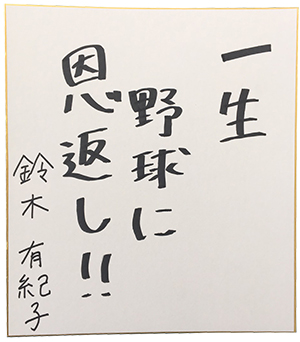 一生
野球に
恩返し!!
鈴木 有紀子